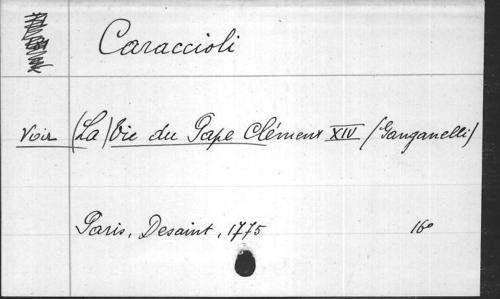 Caraccioli
Voir (La) Vie du Pape Clément XIV (Ganganelli)
Paris, Desaint, 1775 16°